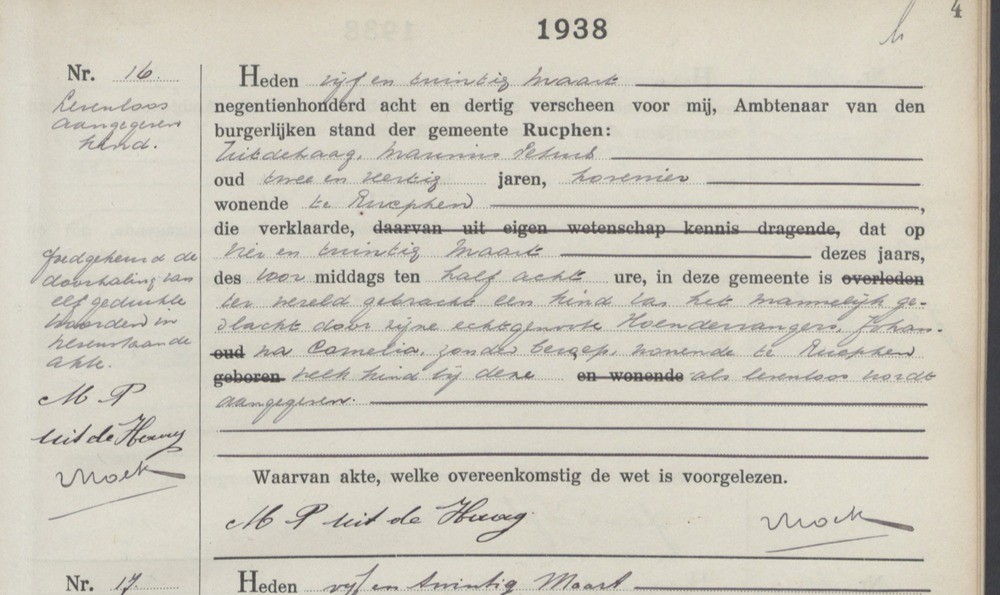 4
1938
Nr. 16.
Levenloos
aangegeven
kind.
Heden vijf en twintig Maart
negentienhonderd acht en dertig verscheen voor mij, Ambtenaar van den
burgerlijken stand der gemeente Rucphen:
Uitdehaag, Marinus Petrus
oud twee en veertig jaren, hovenier
wonende te Rucphen,
die verklaarde, daarvan uit eigen wetenschap kennis dragende, dat op
vier en twintig Maart dezes jaars,
des voor middags ten half acht ure, in deze gemeente is overleden
ter wereld gebracht een kind van het mannelijk ge-
slacht door zijne echtgenoote Hoendervangers, Johan-
oud na Cornelia, zonder beroep, wonende te Rucphen
geboren welk kind bij deze en wonende als levenloos wordt
aangegeven.
Goedgekeurd de
doorhaling van
elf gedrukte
woorden in
nevenstaande
akte.
M P
uit de Haag
Waarvan akte, welke overeenkomstig de wet is voorgelezen.
M P uit de Haag
Nr. 17.
Heden vijf en twintig Maart